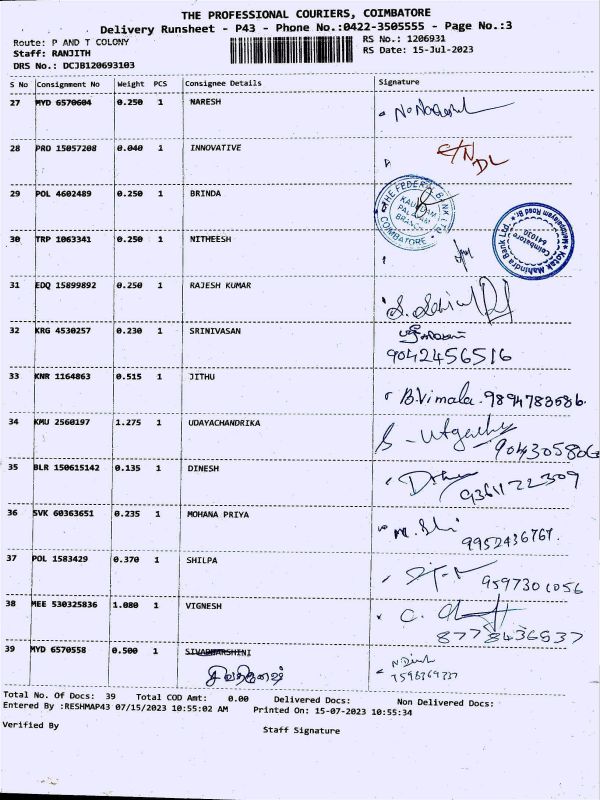 THE PROFESSIONAL COURIERS, COIMBATORE
Delivery Runsheet - P43 - Phone No.:0422-3505555 - Page No.:3
Route: P AND T COLONY
RS No.: 1206931
Staff: RANJITH
RS Date: 15-Jul-2023
DRS No.: DCJB120693103
S No Consignment No Weight PCS Consignee Details Signature
27 MYD 6570604 0.250 1 NARESH
28 PRO 15057208 0.040 1 INNOVATIVE
29 POL 4602489 0.250 1 BRINDA
THE FEDERAL BANK LTD
COIMBATORE
30 TRP 1063341 0.250 1 NITHEESH
Kotak Mahindra Bank Ltd.
Coimbatore
641030
31 EDQ 15899892 0.250 1 RAJESH KUMAR
32 KRG 4530257 0.230 1 SRINIVASAN
9042456516
33 KNR 1164863 0.515 1 JITHU B.Vimala. 9894783686.
34 KMU 2560197 1.275 1 UDAYACHANDRIKA
35 BLR 150615142 0.135 1 DINESH
36 SVK 60363651 0.235 1 MOHANA PRIYA
9952436767.
37 POL 1583429 0.370 1 SHILPA
9597301056
38 MEE 530325836 1.080 1 VIGNESH
8778436537
39 MYD 6570558 0.500 1 SIVADHARSHINI
Total No. Of Docs: 39 Total COD Amt: 0.00 Delivered Docs: Non Delivered Docs:
Entered By :RESHMAP43 07/15/2023 10:55:02 AM Printed On: 15-07-2023 10:55:34
Verified By
Staff Signature